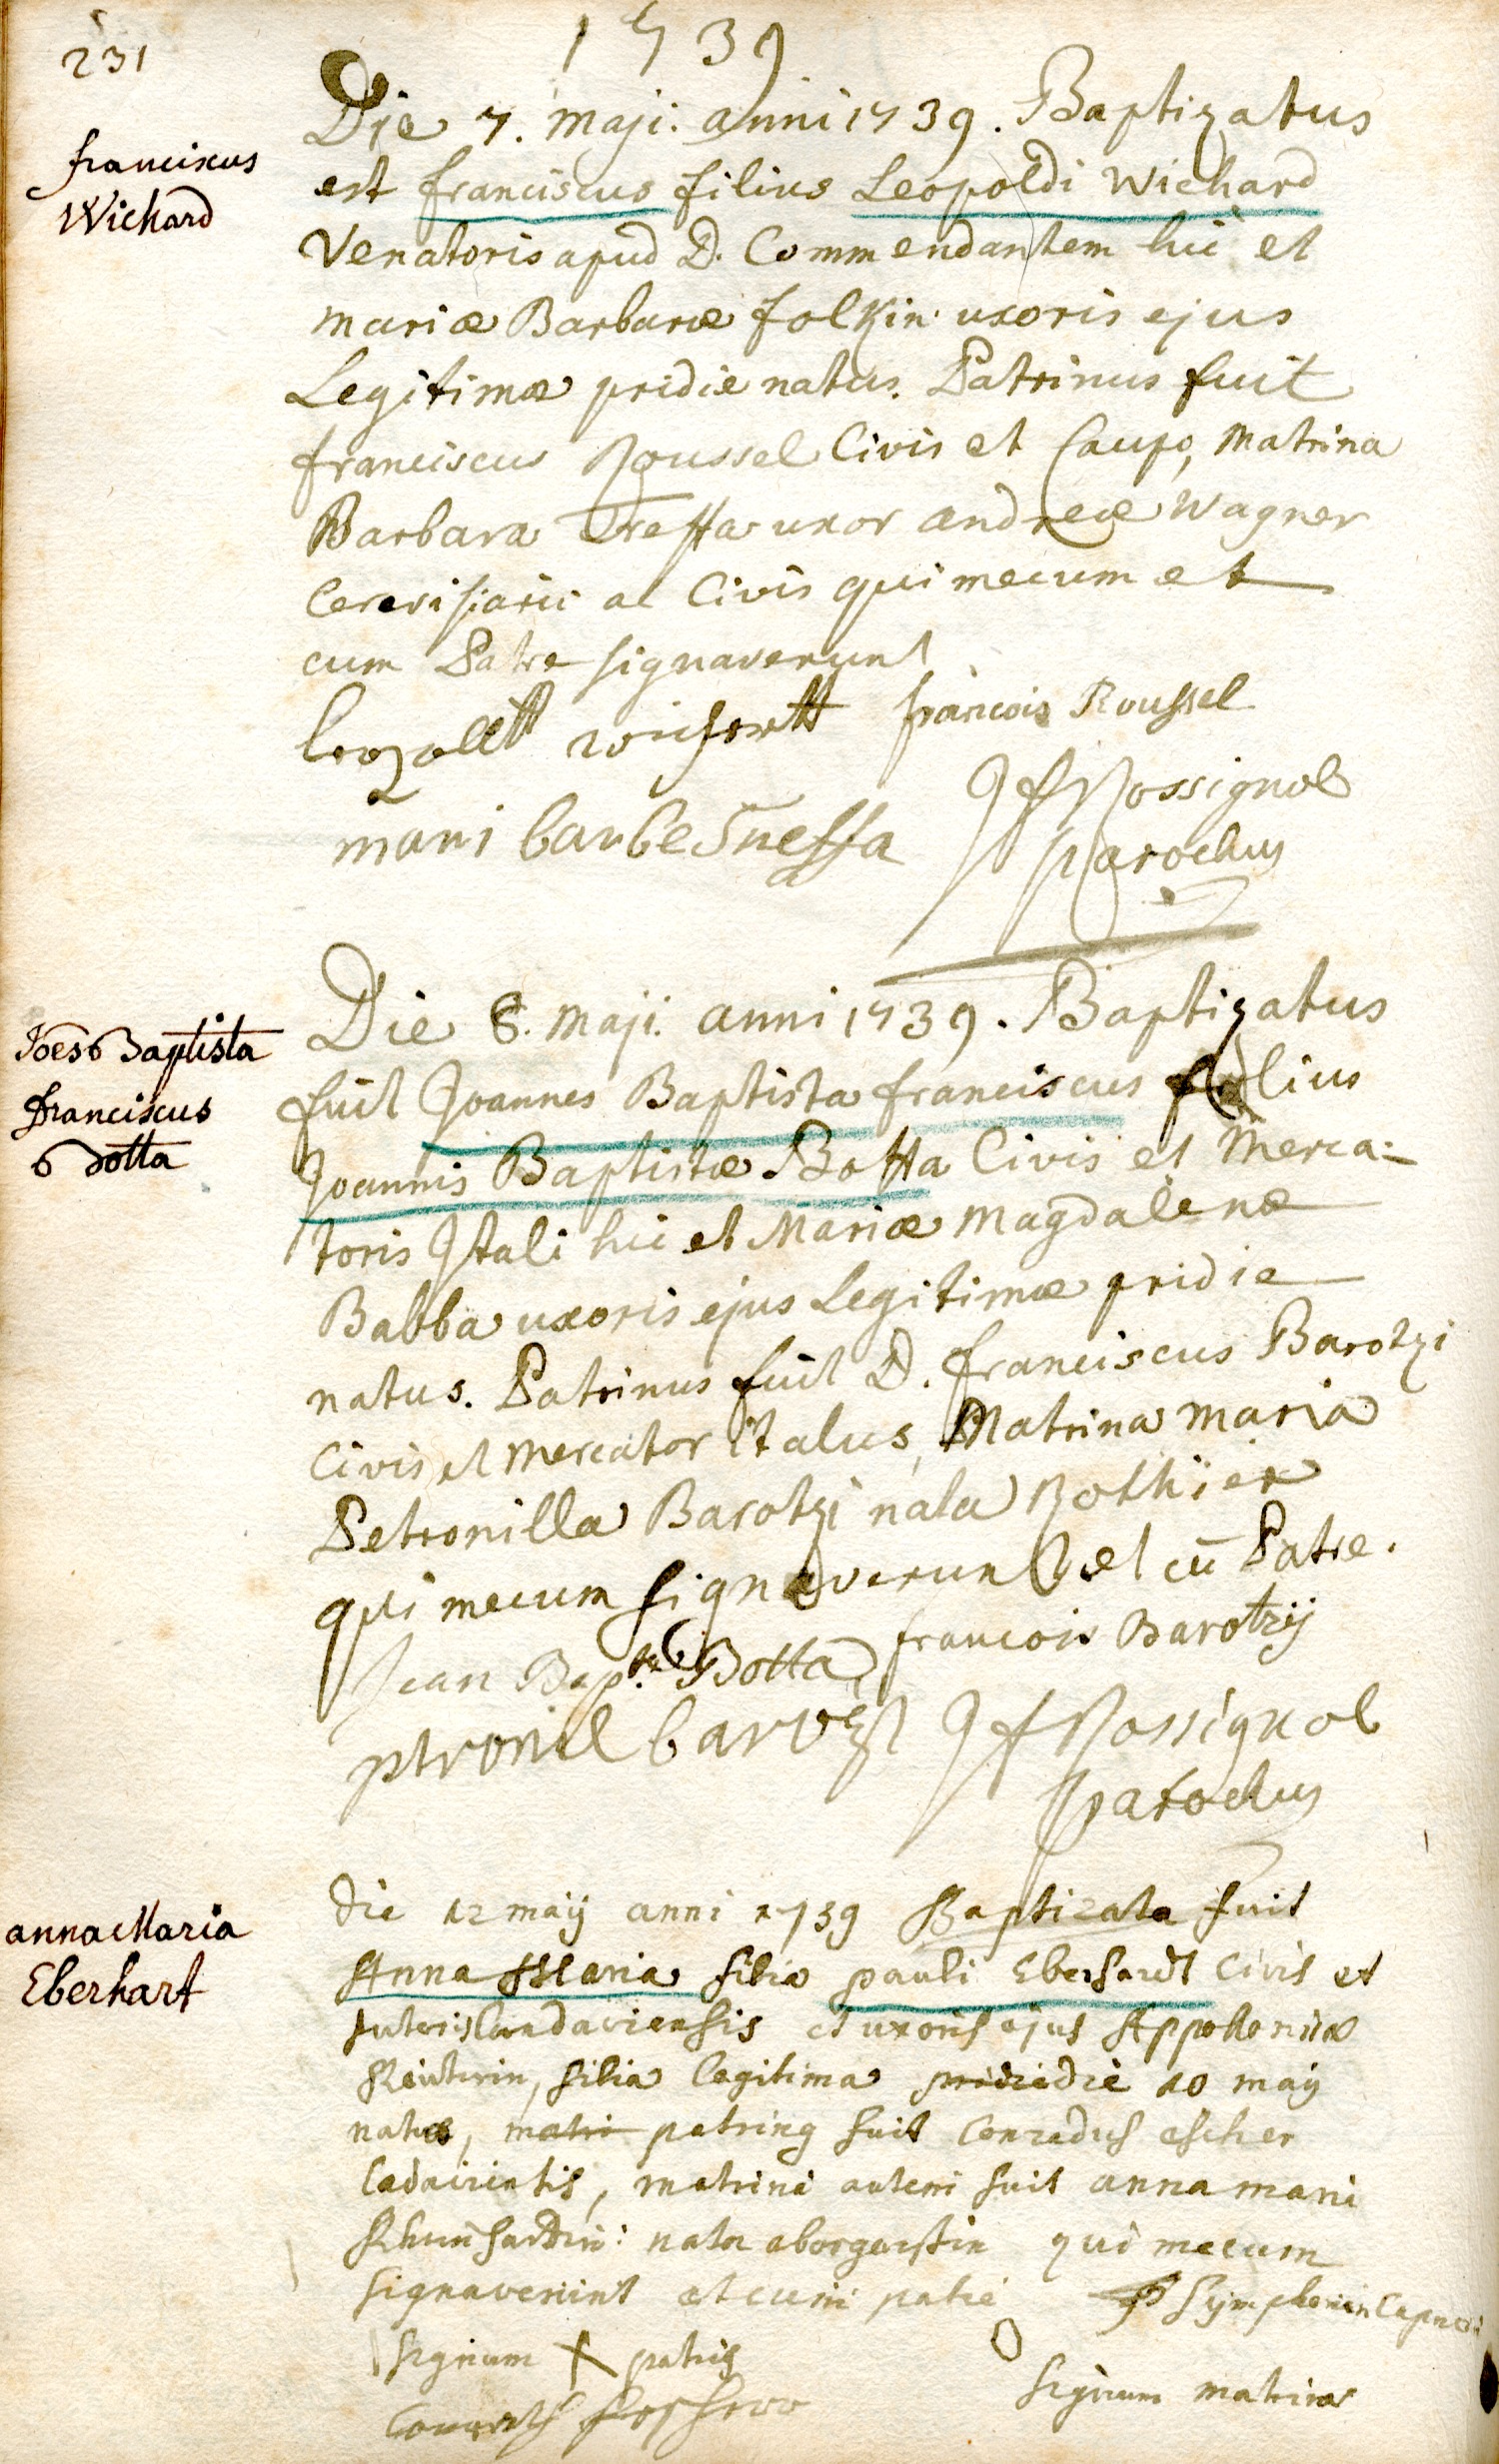 231
1739
franciscus
Wichard
Die 7. Maji. anni 1739. Baptizatus
est franciscus filius Leopoldi Wichard
Venatoris apud D. Commendantem hic et
Mariæ Barbaræ folkin uxoris ejus
Legitimæ pridie natus. Patrinus fuit
franciscus Roussel Civis et Caupo, Matrina
Barbara uxor andreæ Wagner
Cerevisiarii ac Civis qui mecum et
cum Patre signaverunt
francois Roussel
mari barbe
JfRossignol
parochus
Joes Baptista
franciscus
botta
Die 8. Maji. anni 1739. Baptizatus
fuit Joannes Baptista franciscus filius
Joannis Baptistæ Botta Civis et Merca-
toris Itali hic et Mariæ Magdalenæ
Babba uxoris ejus Legitimæ pridie
natus. Patrinus fuit D. franciscus Barotzi
Civis et Mercator italus, Matrina Maria
Petronilla Barotzi nata Rothier
qui mecum signaverunt et cū Patre.
Jean Bapte Botta francois Barotzij
JfRossignol
parochus
anna Maria
Eberhart
die 12 maij anni 1739 Baptizata fuit
Anna Maria filia pauli Eberhardt Civis et
Landaviensis et uxoris ejus Appoloniæ
filia legitima die 10 maij
nata, matri patrinus fuit Conradus escher
matrina autem fuit anna mari
nata qui mecum
signaverunt et cum patre
signum X patris
O
signum matrinæ